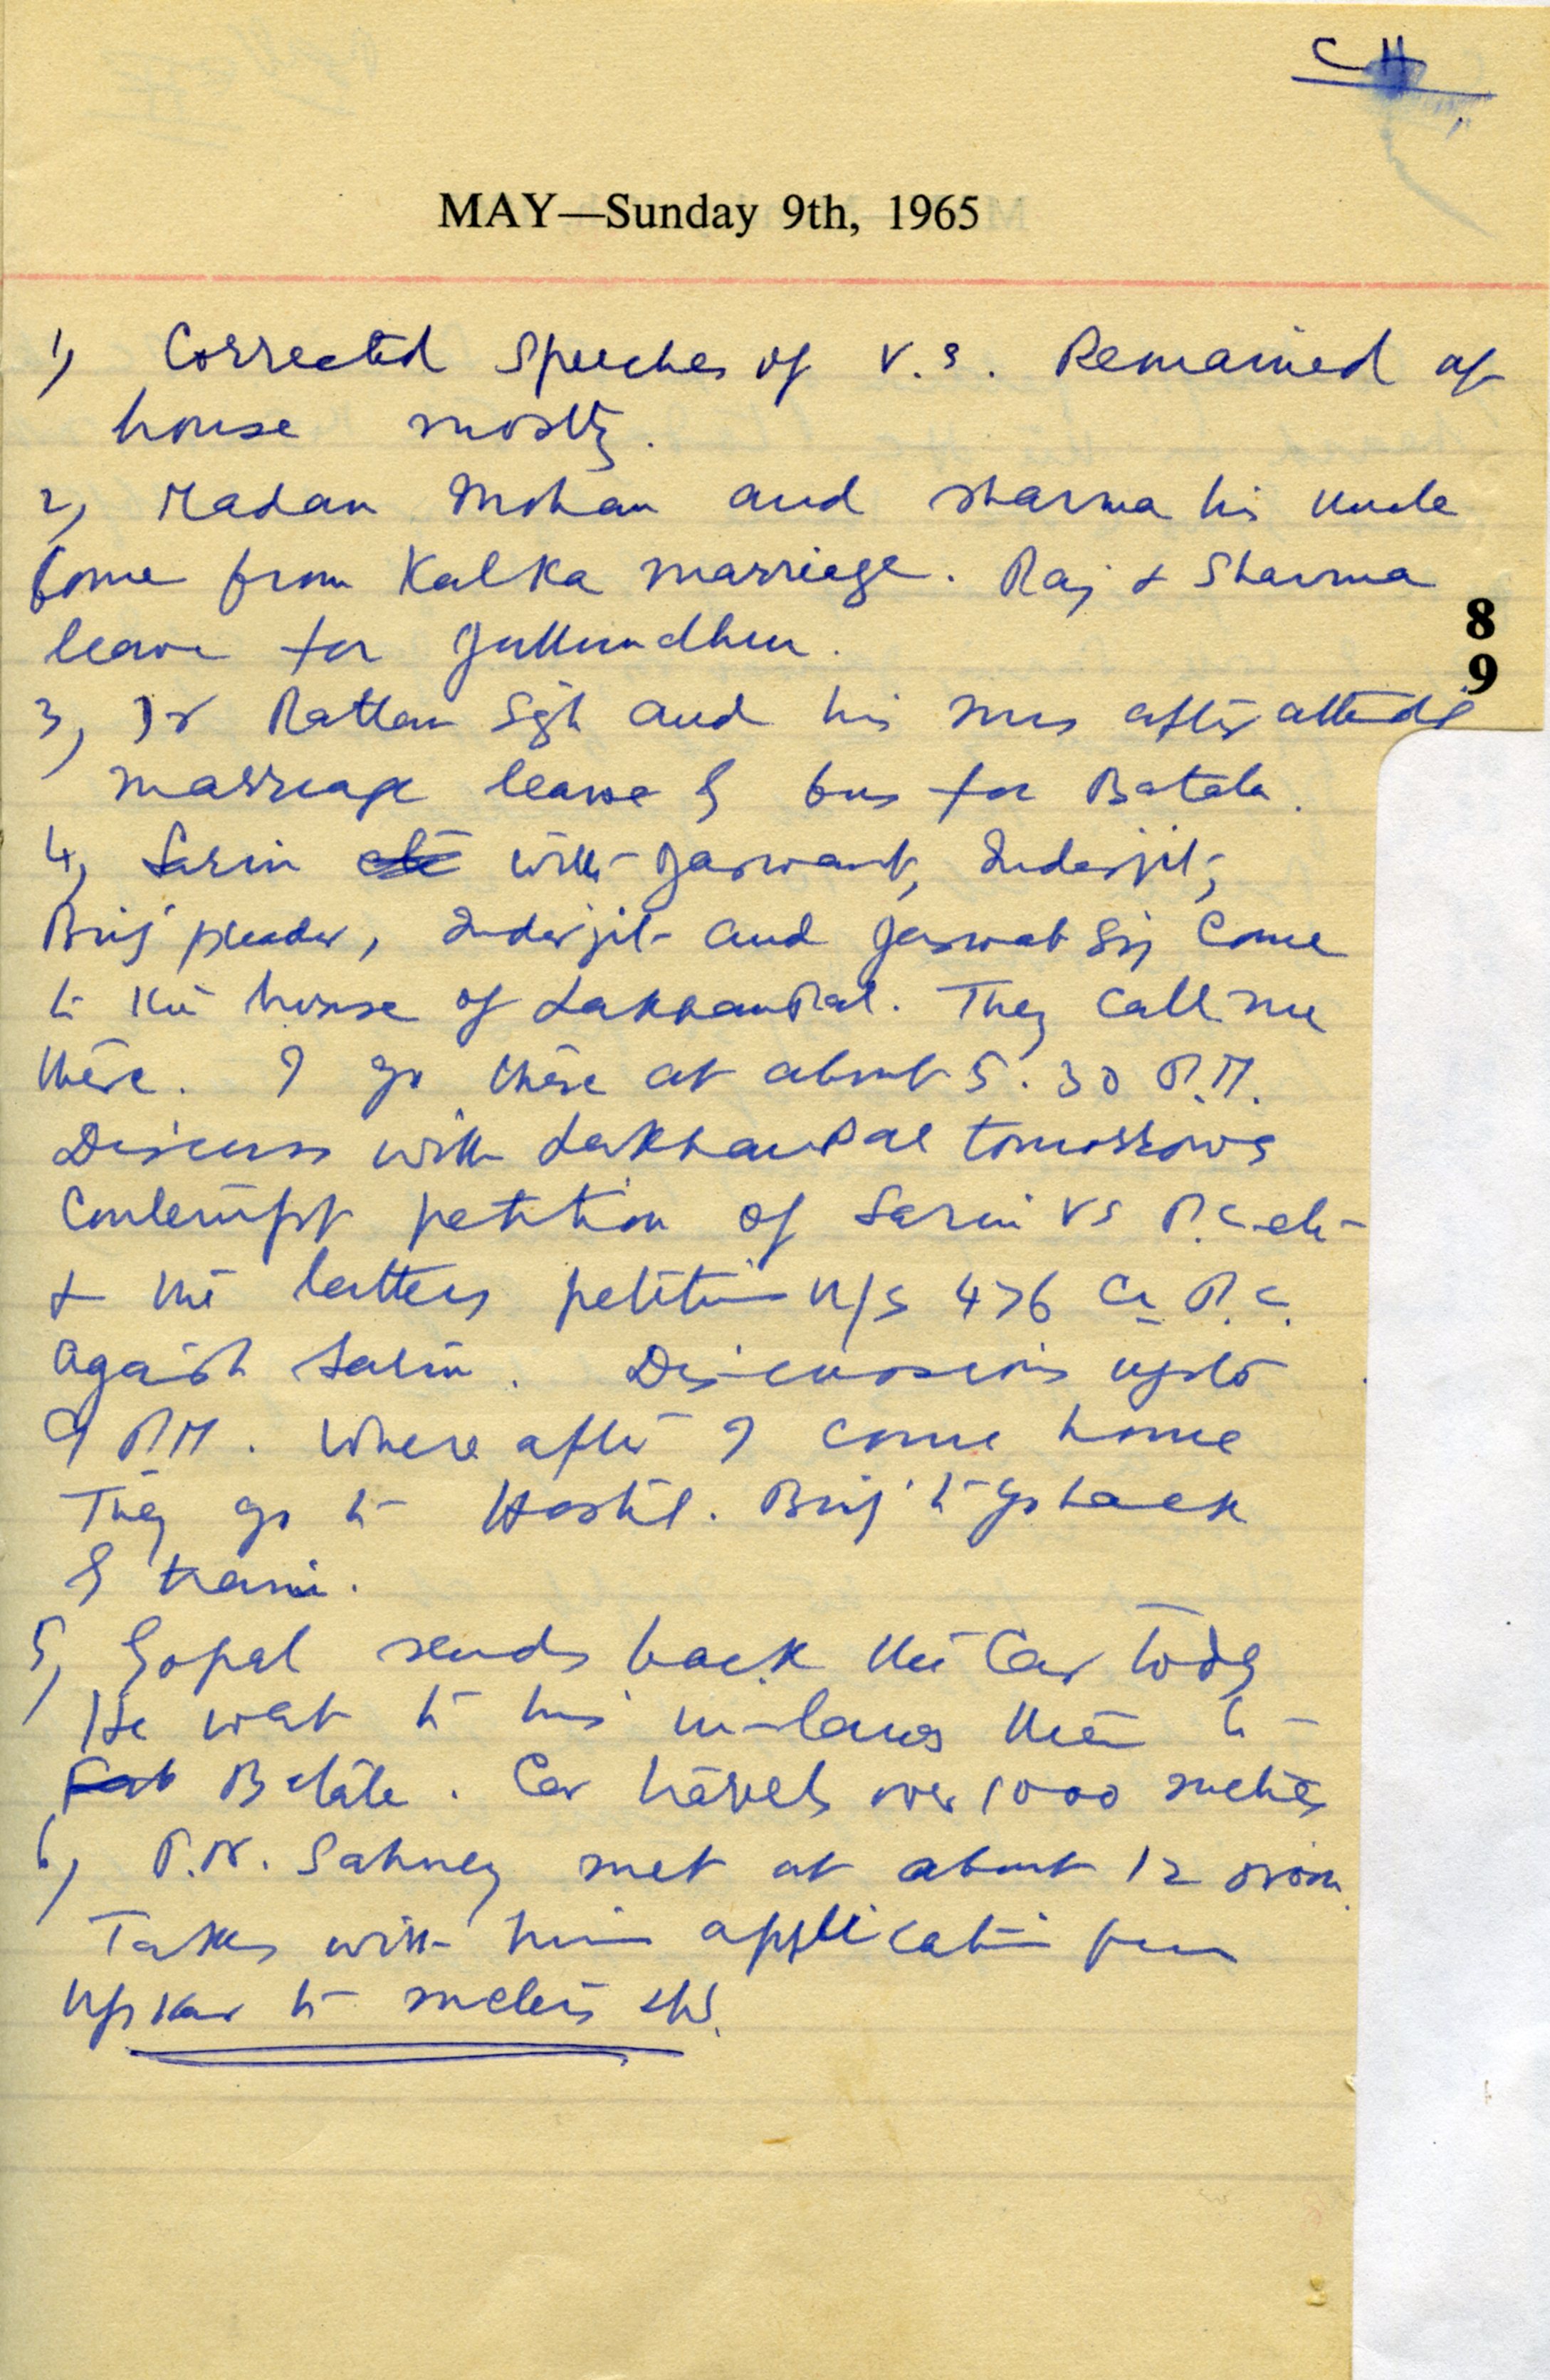 CH
MAY—Sunday 9th, 1965
1) Corrected Speeches of V.S. Remained at
house mostly.
2) Madan Mohan and Sharma his uncle
come from Kalka marriage. Raj & Sharma
leave for Jullundhur.
8
9
3) Dr Rattan Sgh and his Mrs after attendg
marriage leave by bus for Batala.
4) Sarin with Jaswant, Inderjit,
Brij pleader, Inderjit and Jaswat Sgh Come
to the house of LakhanPal. They call me
there. I go there at about 5.30 P.M.
Discuss with LakhanPal tomorrows
Contempt petition of Sarin VS P.C. etc
& the latters petition u/s 476 Cr. P.C.
against Sarin. Discussions upto
9 P.M. Where after I come home
They go to Hostel. Brij to go back
by train.
5) Gopal sends back the Car today
He went to his in-laws then to
Batala. Car travels over 1000 metres
6) P.N. Sahney met at about 12 noon.
Takes with him application from
Upkar to